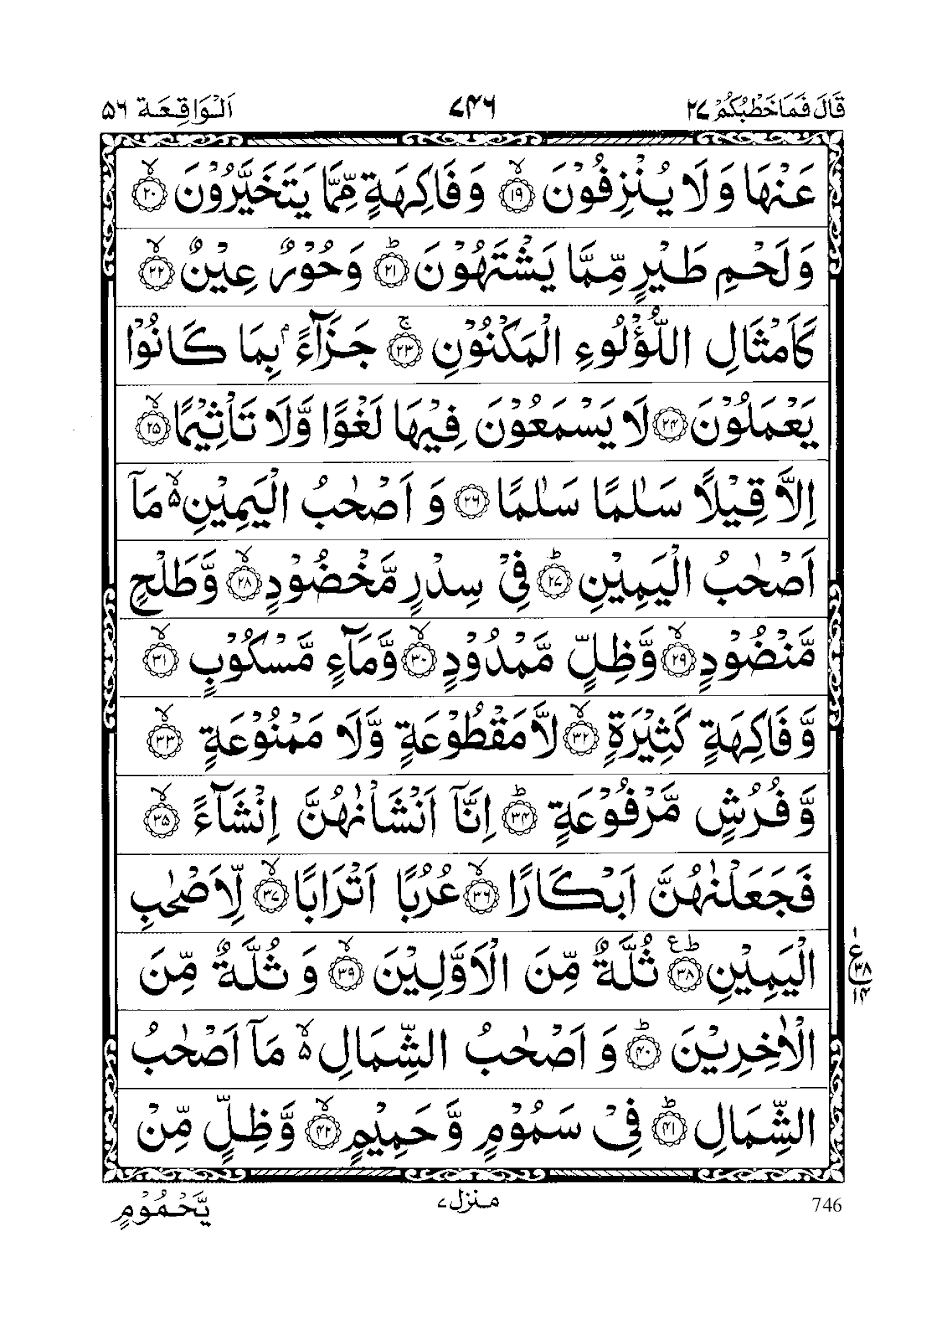 قَالَ فَمَا خَطْبُكُمْ ۲۷ ۷۴۶ اَلْوَاقِعَة ۵۶
عَنْهَا وَ لَا يُنْزِفُوْنَ ۙ﴿۱۹﴾ وَ فَاكِهَةٍ مِّمَّا يَتَخَيَّرُوْنَ ۙ﴿۲۰﴾
وَ لَحْمِ طَيْرٍ مِّمَّا يَشْتَهُوْنَ ؕ﴿۲۱﴾ وَ حُوْرٌ عِيْنٌ ۙ﴿۲۲﴾
كَاَمْثَالِ اللُّؤْلُوءِ الْمَكْنُوْنِ ۚ﴿۲۳﴾ جَزَآءًۢ بِمَا كَانُوْا
يَعْمَلُوْنَ ﴿۲۴﴾ لَا يَسْمَعُوْنَ فِيْهَا لَغْوًا وَّ لَا تَاْثِيْمًا ۙ﴿۲۵﴾
اِلَّا قِيْلًا سَلٰمًا سَلٰمًا ﴿۲۶﴾ وَ اَصْحٰبُ الْيَمِيْنِ ۬ۙ مَاۤ
اَصْحٰبُ الْيَمِيْنِ ؕ﴿۲۷﴾ فِيْ سِدْرٍ مَّخْضُوْدٍ ۙ﴿۲۸﴾ وَّ طَلْحٍ
مَّنْضُوْدٍ ۙ﴿۲۹﴾ وَّ ظِلٍّ مَّمْدُوْدٍ ۙ﴿۳۰﴾ وَّ مَآءٍ مَّسْكُوْبٍ ۙ﴿۳۱﴾
وَّ فَاكِهَةٍ كَثِيْرَةٍ ۙ﴿۳۲﴾ لَّا مَقْطُوْعَةٍ وَّ لَا مَمْنُوْعَةٍ ۙ﴿۳۳﴾
وَّ فُرُشٍ مَّرْفُوْعَةٍ ؕ﴿۳۴﴾ اِنَّاۤ اَنْشَاْنٰهُنَّ اِنْشَآءً ۙ﴿۳۵﴾
فَجَعَلْنٰهُنَّ اَبْكَارًا ۙ﴿۳۶﴾ عُرُبًا اَتْرَابًا ۙ﴿۳۷﴾ لِّاَصْحٰبِ
الْيَمِيْنِ ؕ٪﴿۳۸﴾ ثُلَّةٌ مِّنَ الْاَوَّلِيْنَ ۙ﴿۳۹﴾ وَ ثُلَّةٌ مِّنَ
۱ ع ۳۸ ۱۴
الْاٰخِرِيْنَ ؕ﴿۴۰﴾ وَ اَصْحٰبُ الشِّمَالِ ۬ۙ مَاۤ اَصْحٰبُ
الشِّمَالِ ؕ﴿۴۱﴾ فِيْ سَمُوْمٍ وَّ حَمِيْمٍ ۙ﴿۴۲﴾ وَّ ظِلٍّ مِّنْ
746 منزل ۷ يَّحْمُوْمٍ